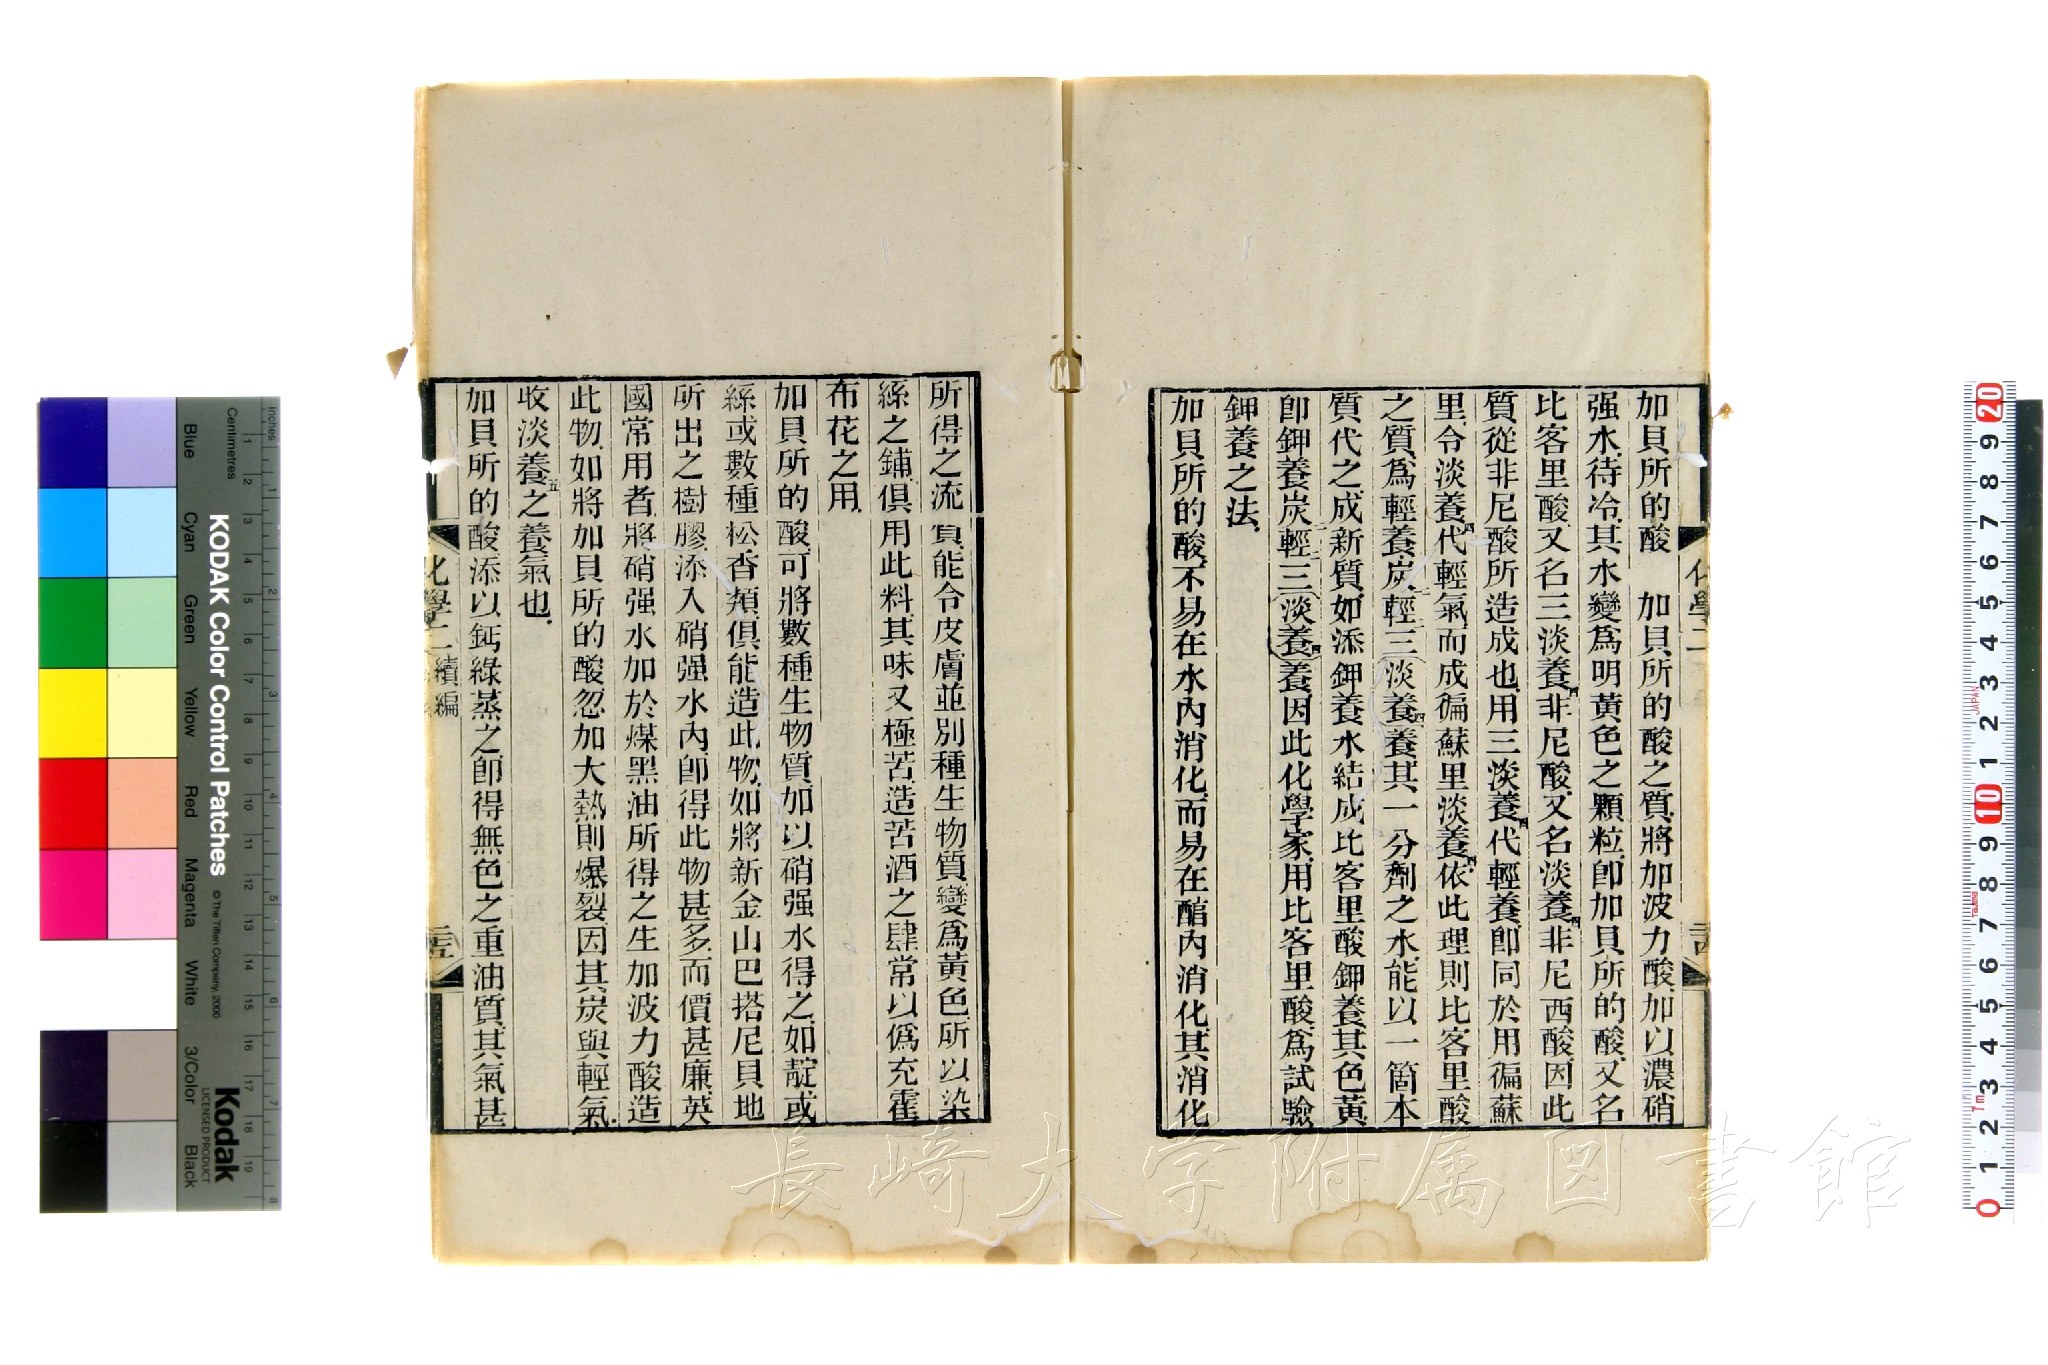 加貝所的酸　加貝所的酸之質將加波力酸加以濃硝
强水待冷其水變爲明黃色之顆粒卽加貝所的酸又名
比客里酸又名三淡養四非尼酸又名淡養四非尼西酸因此
質從非尼酸所造成也用三淡養四代輕養卽同於用徧蘇
里令淡養四代輕氣而成徧蘇里淡養四依此理則比客里酸
之質爲輕養炭二輕三淡養四養其一分劑之水能以一箇本
質代之成新質如添鉀養水結成比客里酸鉀養其色黃
卽鉀養炭二輕三淡養四養因此化學家用比客里酸爲試驗
鉀養之法
加貝所的酸不易在水內消化而易在醕內消化其消化
所得之流質能令皮膚並別種生物質變爲黃色所以染
絲之鋪俱用此料其味又極苦造苦酒之肆常以僞充霍
布花之用
加貝所的酸可將數種生物質加以硝强水得之如靛或
絲或數種松香類俱能造此物如將新金山巴塔尼貝地
所出之樹膠添入硝强水內卽得此物甚多而價甚廉英
國常用者將硝强水加於煤黑油所得之生加波力酸造
此物如將加貝所的酸忽加大熱則爆裂因其炭與輕氣
收淡養五之養氣也
加貝所的酸添以鈣綠蒸之卽得無色之重油質其氣甚
化學二 續編
長崎大学附属図書館
KODAK Color Control Patches
© The Tiffen Company, 2000
Kodak
LICENSED PRODUCT
Inches
Centimetres
Blue
Cyan
Green
Yellow
Red
Magenta
White
3/Color
Black